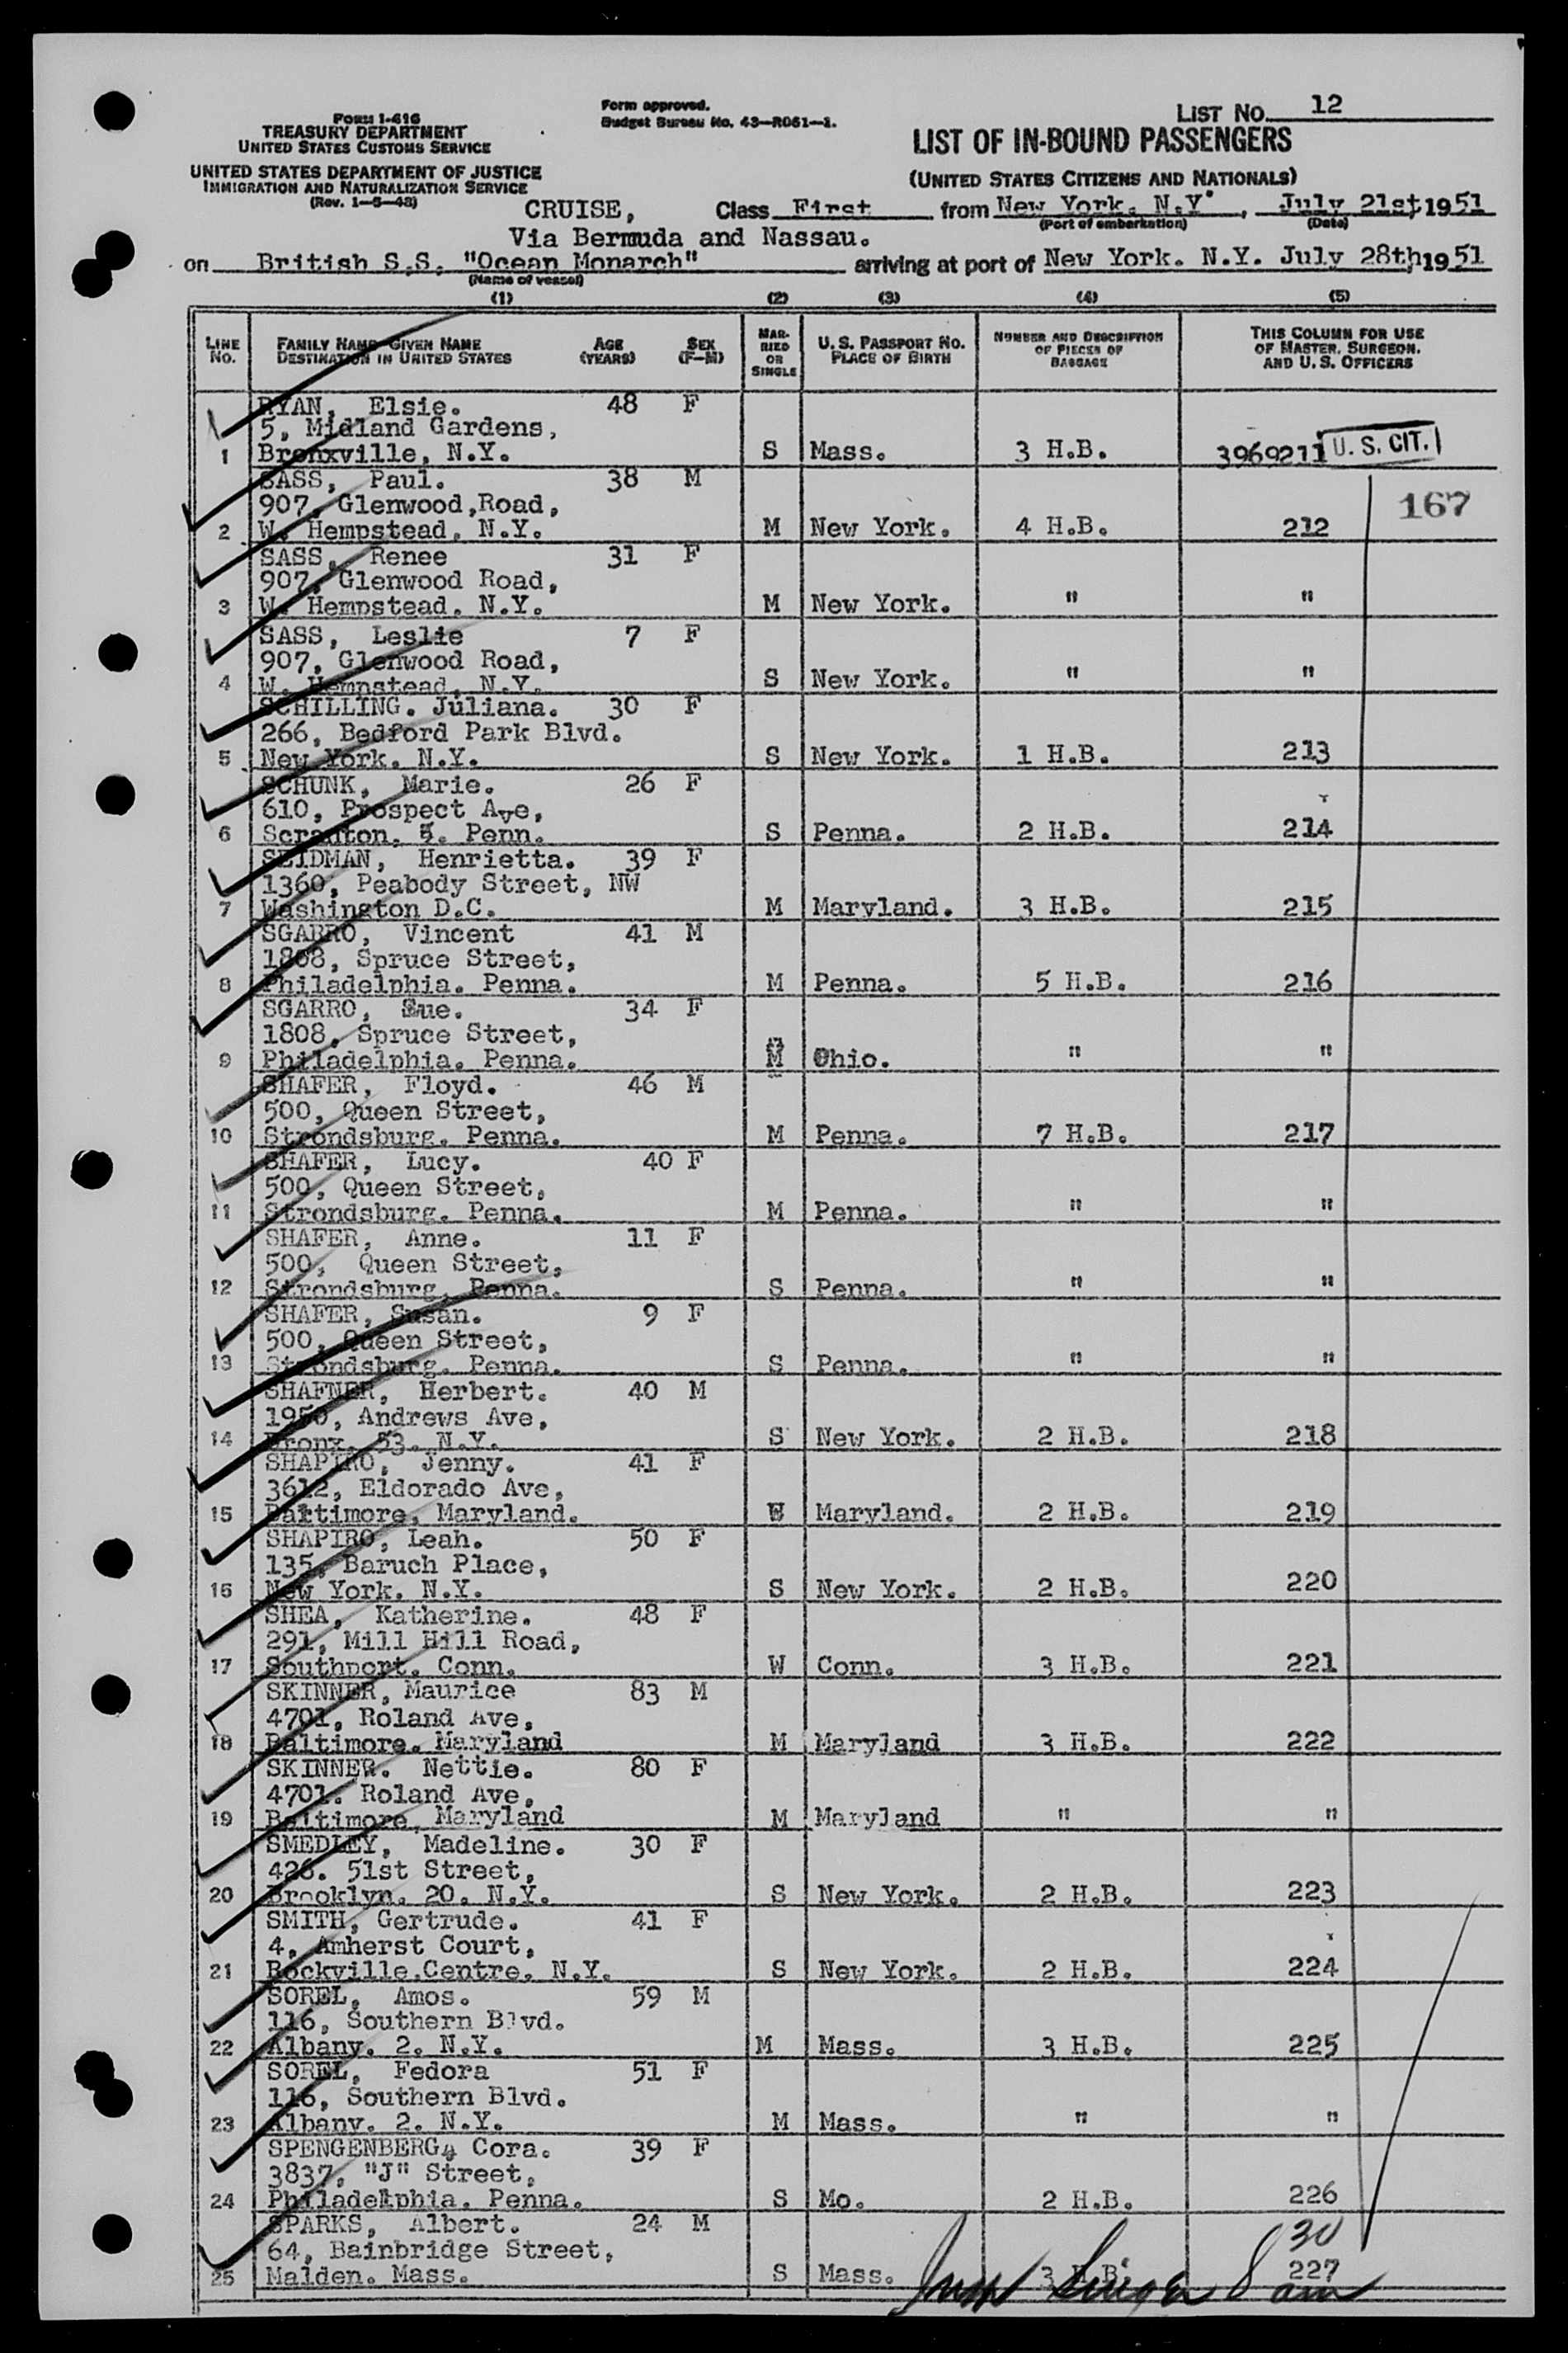 12
Form I-416
TREASURY DEPARTMENT
UNITED STATES CUSTOMS SERVICE
UNITED STATES DEPARTMENT OF JUSTICE
IMMIGRATION AND NATURALIZATION SERVICE
(Rev. 1-5-48)
Form approved.
Budget Bureau No. 43-R061-1.
LIST No. 12
LIST OF IN-BOUND PASSENGERS
(UNITED STATES CITIZENS AND NATIONALS)
CRUISE, Class First from New York. N.Y. , July 21st, 1951
(Port of embarkation) (Date)
Via Bermuda and Nassau.
on British S.S. "Ocean Monarch" arriving at port of New York. N.Y. July 28th, 1951
(Name of vessel)
(1) (2) (3) (4) (5)
LINE No. FAMILY NAME—GIVEN NAME DESTINATION IN UNITED STATES AGE (YEARS) SEX (F—M) MARRIED OR SINGLE U. S. PASSPORT No. PLACE OF BIRTH NUMBER AND DESCRIPTION OF PIECES OF BAGGAGE THIS COLUMN FOR USE OF MASTER, SURGEON, AND U. S. OFFICERS
RYAN, Elsie. 48 F
5, Midland Gardens,
1 Bronxville, N.Y. S Mass. 3 H.B. 3969211 U. S. CIT.
SASS, Paul. 38 M
907, Glenwood,Road, 167
2 W. Hempstead, N.Y. M New York. 4 H.B. 212
SASS, Renee 31 F
907, Glenwood Road,
3 W. Hempstead. N.Y. M New York. " "
SASS, Leslie 7 F
907, Glenwood Road,
4 W. Hempstead. N.Y. S New York. " "
SCHILLING. Juliana. 30 F
266, Bedford Park Blvd.
5 New York. N.Y. S New York. 1 H.B. 213
SCHUNK, Marie. 26 F
610, Prospect Ave,
6 Scranton. 5. Penn. S Penna. 2 H.B. 214
SEIDMAN, Henrietta. 39 F
1360, Peabody Street, NW
7 Washington D.C. M Maryland. 3 H.B. 215
SGARRO, Vincent 41 M
1808, Spruce Street,
8 Philadelphia. Penna. M Penna. 5 H.B. 216
SGARRO, Sue. 34 F
1808, Spruce Street,
9 Philadelphia. Penna. M Ohio. " "
SHAFER, Floyd. 46 M
500, Queen Street,
10 Strondsburg. Penna. M Penna. 7 H.B. 217
SHAFER, Lucy. 40 F
500, Queen Street,
11 Strondsburg. Penna. M Penna. " "
SHAFER, Anne. 11 F
500, Queen Street,
12 Strondsburg. Penna. S Penna. " "
SHAFER, Susan. 9 F
500, Queen Street,
13 Strondsburg. Penna. S Penna. " "
SHAFNER, Herbert. 40 M
1950, Andrews Ave,
14 Bronx. 53. N.Y. S New York. 2 H.B. 218
SHAPIRO, Jenny. 41 F
3612, Eldorado Ave,
15 Baltimore, Maryland. Maryland. 2 H.B. 219
SHAPIRO, Leah. 50 F
135, Baruch Place,
16 New York. N.Y. S New York. 2 H.B. 220
SHEA, Katherine. 48 F
291, Mill Hill Road,
17 Southport. Conn. W Conn. 3 H.B. 221
SKINNER, Maurice 83 M
4701, Roland Ave,
18 Baltimore. Maryland M Maryland 3 H.B. 222
SKINNER. Nettie. 80 F
4701. Roland Ave,
19 Baltimore, Maryland M Maryland " "
SMEDLEY, Madeline. 30 F
426. 51st Street,
20 Brooklyn. 20. N.Y. S New York. 2 H.B. 223
SMITH, Gertrude. 41 F
4, Amherst Court,
21 Rockville.Centre. N.Y. S New York. 2 H.B. 224
SOREL, Amos. 59 M
116, Southern Blvd.
22 Albany. 2. N.Y. M Mass. 3 H.B. 225
SOREL, Fedora 51 F
116, Southern Blvd.
23 Albany. 2. N.Y. M Mass. " "
SPENGENBERG, Cora. 39 F
3837, "J" Street,
24 Philadelphia. Penna. S Mo. 2 H.B. 226
SPARKS, Albert. 24 M 30
64, Bainbridge Street,
25 Malden. Mass. S Mass. 3 H.B. 227
Singer 8 am